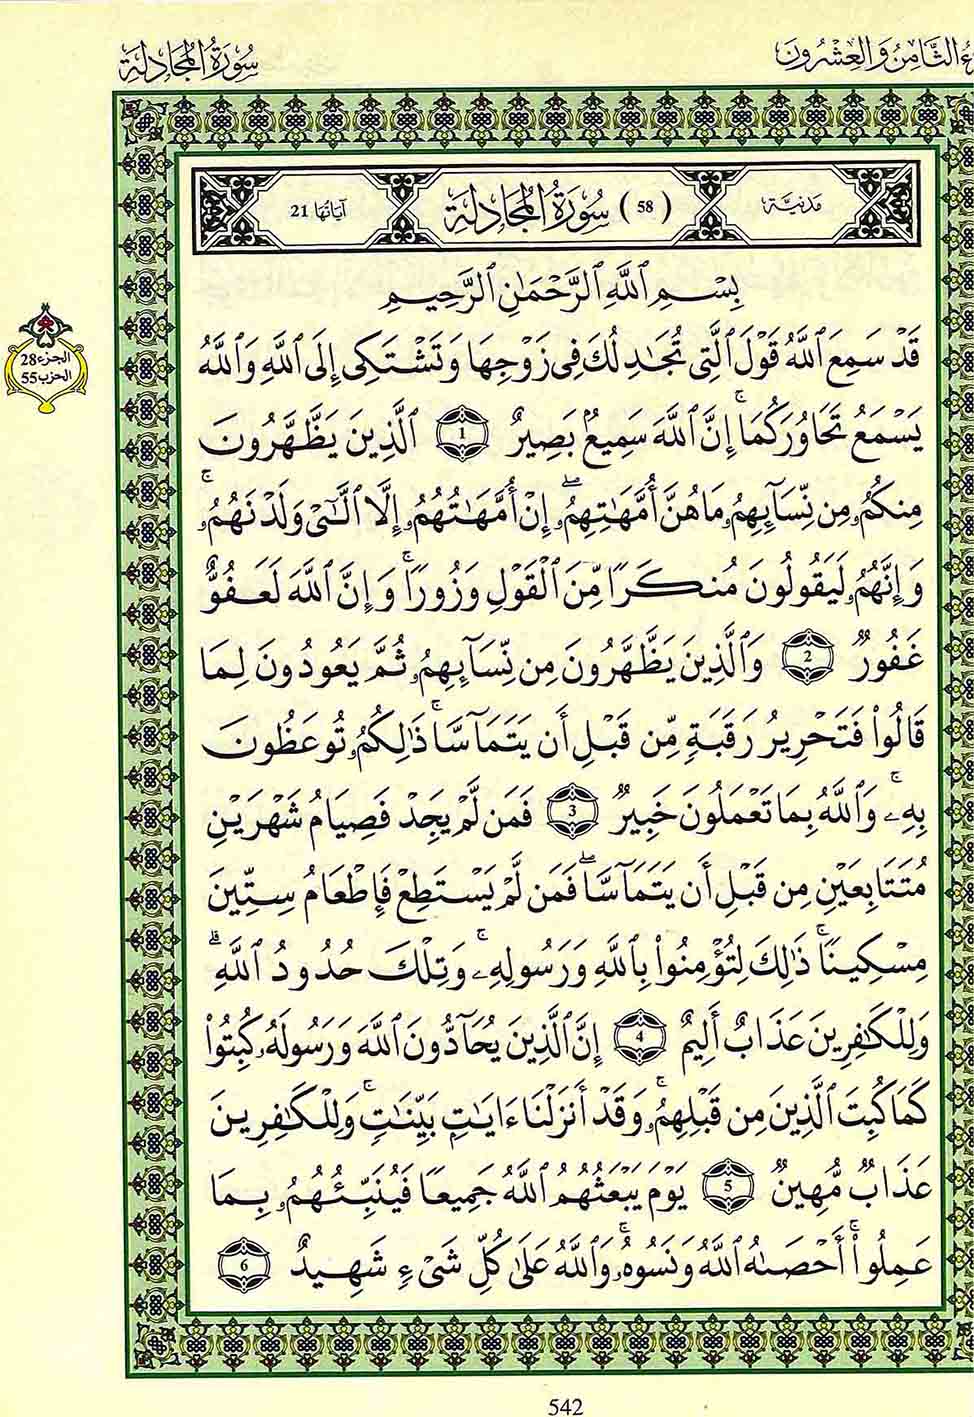 جزءُ الثَّامِنُ وَالعِشْرُونَ سُورَةُ المُجَادِلَةِ
مَدَنِيَّة (58) سُورَةُ المُجَادِلَةِ آيَاتُهَا 21
بِسْمِ ٱللَّهِ ٱلرَّحْمَٰنِ ٱلرَّحِيمِ
قَدْ سَمِعَ ٱللَّهُ قَوْلَ ٱلَّتِى تُجَٰدِلُكَ فِى زَوْجِهَا وَتَشْتَكِى إِلَى ٱللَّهِ وَٱللَّهُ
الجزء28
الحزب55
يَسْمَعُ تَحَاوُرَكُمَا ۚ إِنَّ ٱللَّهَ سَمِيعٌۢ بَصِيرٌ 1 ٱلَّذِينَ يَظَّهَّرُونَ
مِنكُمُۥ مِن نِّسَآئِهِمُۥ مَا هُنَّ أُمَّهَٰتِهِمُۥ ۖ إِنْ أُمَّهَٰتُهُمُۥ إِلَّا ٱلَّٰٓـِٔى وَلَدْنَهُمُۥ ۚ
وَإِنَّهُمُۥ لَيَقُولُونَ مُنكَرًا مِّنَ ٱلْقَوْلِ وَزُورًا ۚ وَإِنَّ ٱللَّهَ لَعَفُوٌّ
غَفُورٌ 2 وَٱلَّذِينَ يَظَّهَّرُونَ مِن نِّسَآئِهِمُۥ ثُمَّ يَعُودُونَ لِمَا
قَالُوا۟ فَتَحْرِيرُ رَقَبَةٍ مِّن قَبْلِ أَن يَتَمَآسَّا ۚ ذَٰلِكُمُۥ تُوعَظُونَ
بِهِۦ ۚ وَٱللَّهُ بِمَا تَعْمَلُونَ خَبِيرٌ 3 فَمَن لَّمْ يَجِدْ فَصِيَامُ شَهْرَيْنِ
مُتَتَابِعَيْنِ مِن قَبْلِ أَن يَتَمَآسَّا ۖ فَمَن لَّمْ يَسْتَطِعْ فَإِطْعَامُ سِتِّينَ
مِسْكِينًا ۚ ذَٰلِكَ لِتُؤْمِنُوا۟ بِٱللَّهِ وَرَسُولِهِۦ ۚ وَتِلْكَ حُدُودُ ٱللَّهِ ۗ
وَلِلْكَٰفِرِينَ عَذَابٌ أَلِيمٌ 4 إِنَّ ٱلَّذِينَ يُحَآدُّونَ ٱللَّهَ وَرَسُولَهُۥ كُبِتُوا۟
كَمَا كُبِتَ ٱلَّذِينَ مِن قَبْلِهِمُۥ ۚ وَقَدْ أَنزَلْنَا ءَايَٰتٍۭ بَيِّنَٰتٍ ۚ وَلِلْكَٰفِرِينَ
عَذَابٌ مُّهِينٌ 5 يَوْمَ يَبْعَثُهُمُ ٱللَّهُ جَمِيعًا فَيُنَبِّئُهُمُۥ بِمَا
عَمِلُوا۟ ۚ أَحْصَىٰهُ ٱللَّهُ وَنَسُوهُۥ ۚ وَٱللَّهُ عَلَىٰ كُلِّ شَىْءٍ شَهِيدٌ 6
542